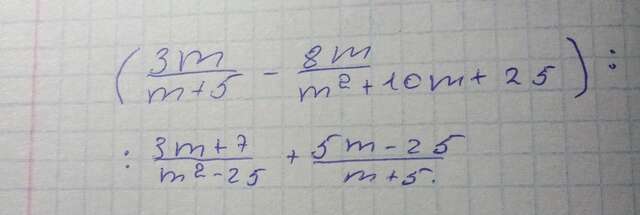 (3m/(m+5) - 8m/(m²+10m+25)) :
: (3m+7)/(m²-25) + (5m-25)/(m+5).